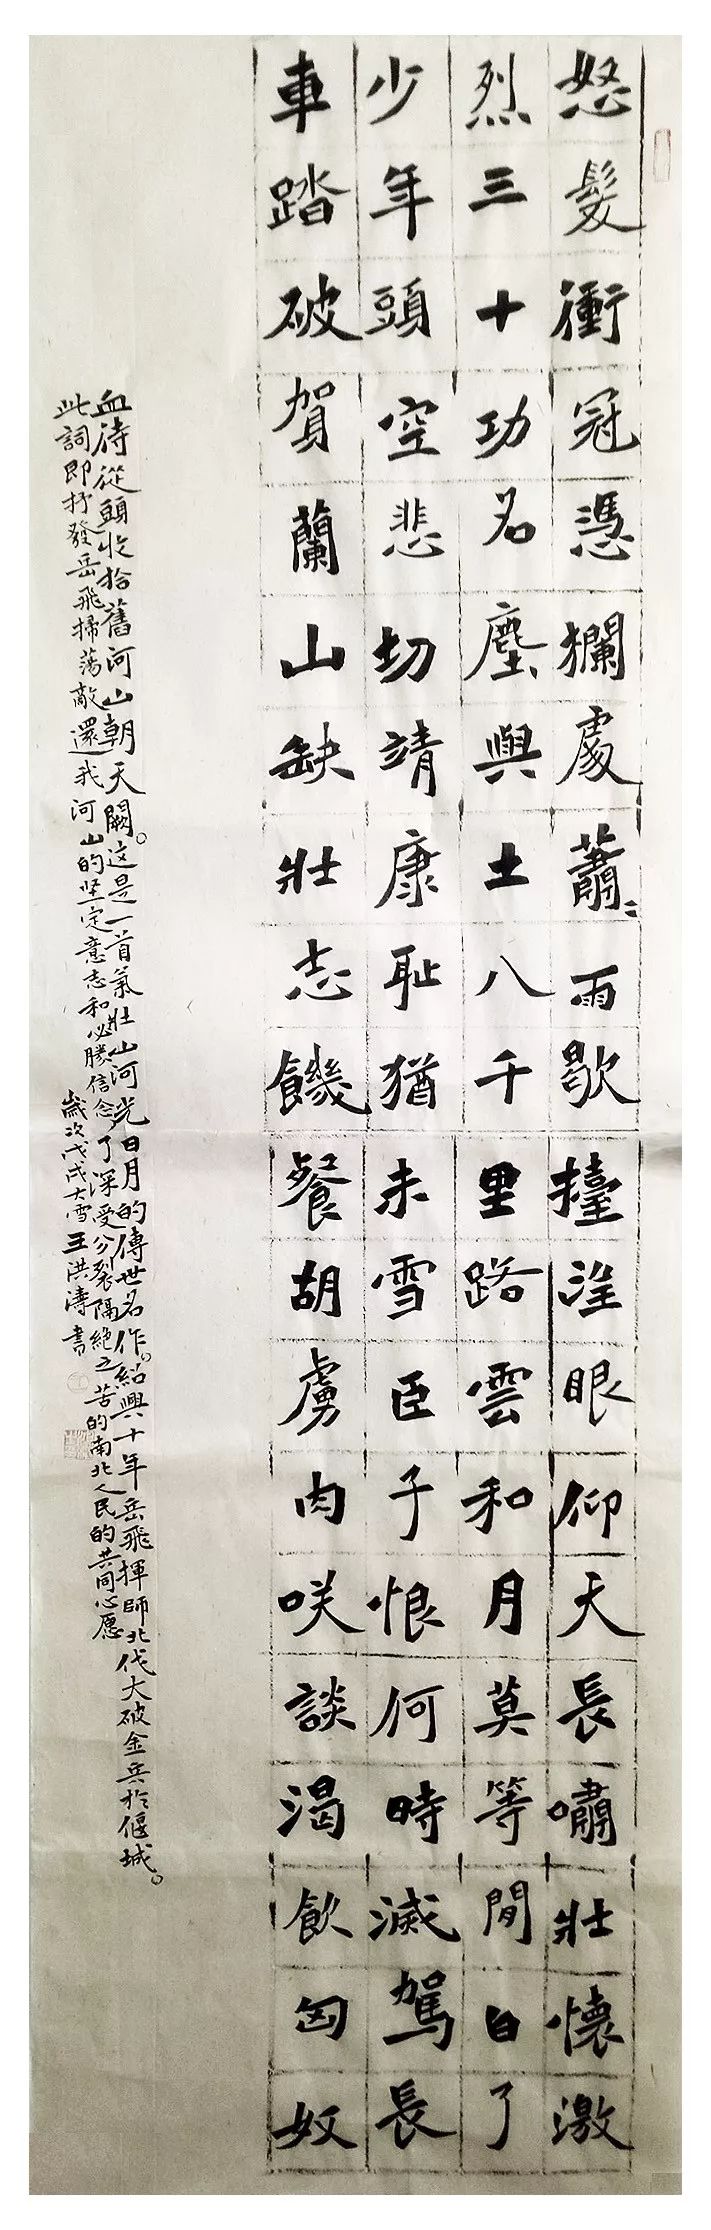 怒髮衝冠憑欄處蕭〻雨歇擡望眼仰天長嘯壯懷激
烈三十功名塵與土八千里路雲和月莫等閒白了
少年頭空悲切靖康恥猶未雪臣子恨何時滅駕長
車踏破賀蘭山缺壯志饑餐胡虜肉咲談渴飲匈奴
血待從頭收拾舊河山朝天闕。这是一首氣壯山河光日月的傳世名作。紹興十年岳飛揮師北伐大破金兵於偃城。
此詞即抒發岳飛掃蕩敵還我河山的坚定意志和必勝信念了深受分裂隔絕之苦的南北人民的共同心愿
歲次戊戌大雪王洪濤書